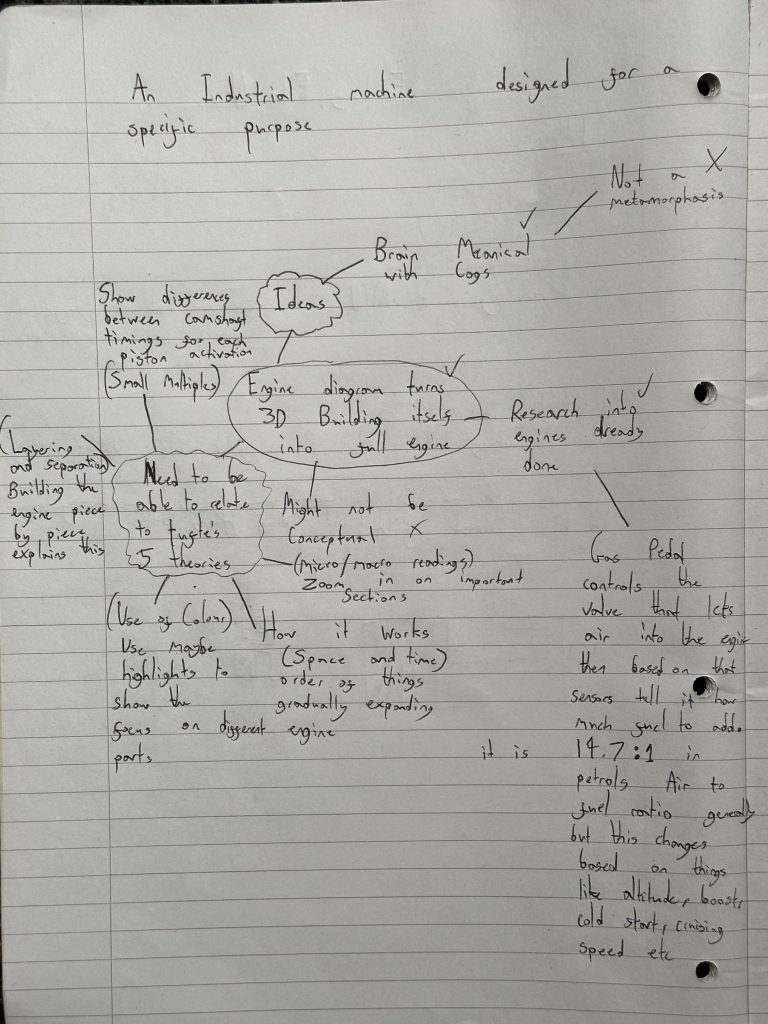 An Industrial machine designed for a
specific purpose
Not a X
metamorphasis
Brain Mecanical ✓
with Cogs
Ideas
Show differences
between camshaft
timings for each
piston activation
(Small Multiples)
Engine diagram turns ✓
3D Building itself
into full engine
Research into ✓
engines already
done
(Layering
and separation)
Building the
engine piece
by piece
explains this
Need to be
able to relate
to tufte's
5 theories
Might not be
Conceptual X
(Micro/macro readings)
Zoom in on important
Sections
(Use of Colour)
Use maybe
highlights to
show the
focus on different engine
parts
How it works
(Space and time)
order of things
gradually expanding
Gas Pedal
controls the
valve that lets
air into the engine
then based on that
sensors tell it how
much fuel to add.
it is 14.7:1 in
petrols Air to
fuel ratio generally
but this changes
based on things
like altitude, boost,
cold start, cruising
speed etc